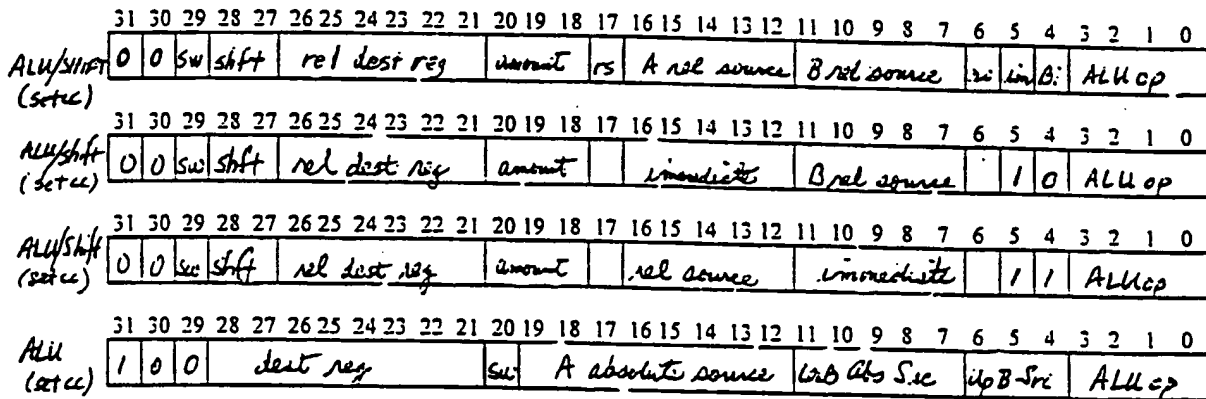 31 30 29 28 27 26 25 24 23 22 21 20 19 18 17 16 15 14 13 12 11 10 9 8 7 6 5 4 3 2 1 0
ALU/SHIFT 0 0 sw shft rel dest reg amount rs A rel source B rel source im Bi ALU op
(setcc)
31 30 29 28 27 26 25 24 23 22 21 20 19 18 17 16 15 14 13 12 11 10 9 8 7 6 5 4 3 2 1 0
ALU/shft 0 0 sw shft rel dest reg amount immediate B rel source 1 0 ALU op
(setcc)
31 30 29 28 27 26 25 24 23 22 21 20 19 18 17 16 15 14 13 12 11 10 9 8 7 6 5 4 3 2 1 0
ALU/Shift 0 0 shft rel dest reg amount rel source immediate 1 1 ALU op
(setcc)
31 30 29 28 27 26 25 24 23 22 21 20 19 18 17 16 15 14 13 12 11 10 9 8 7 6 5 4 3 2 1 0
ALU 1 0 0 dest reg sw A absolute source Abs Src ALU op
(setcc)